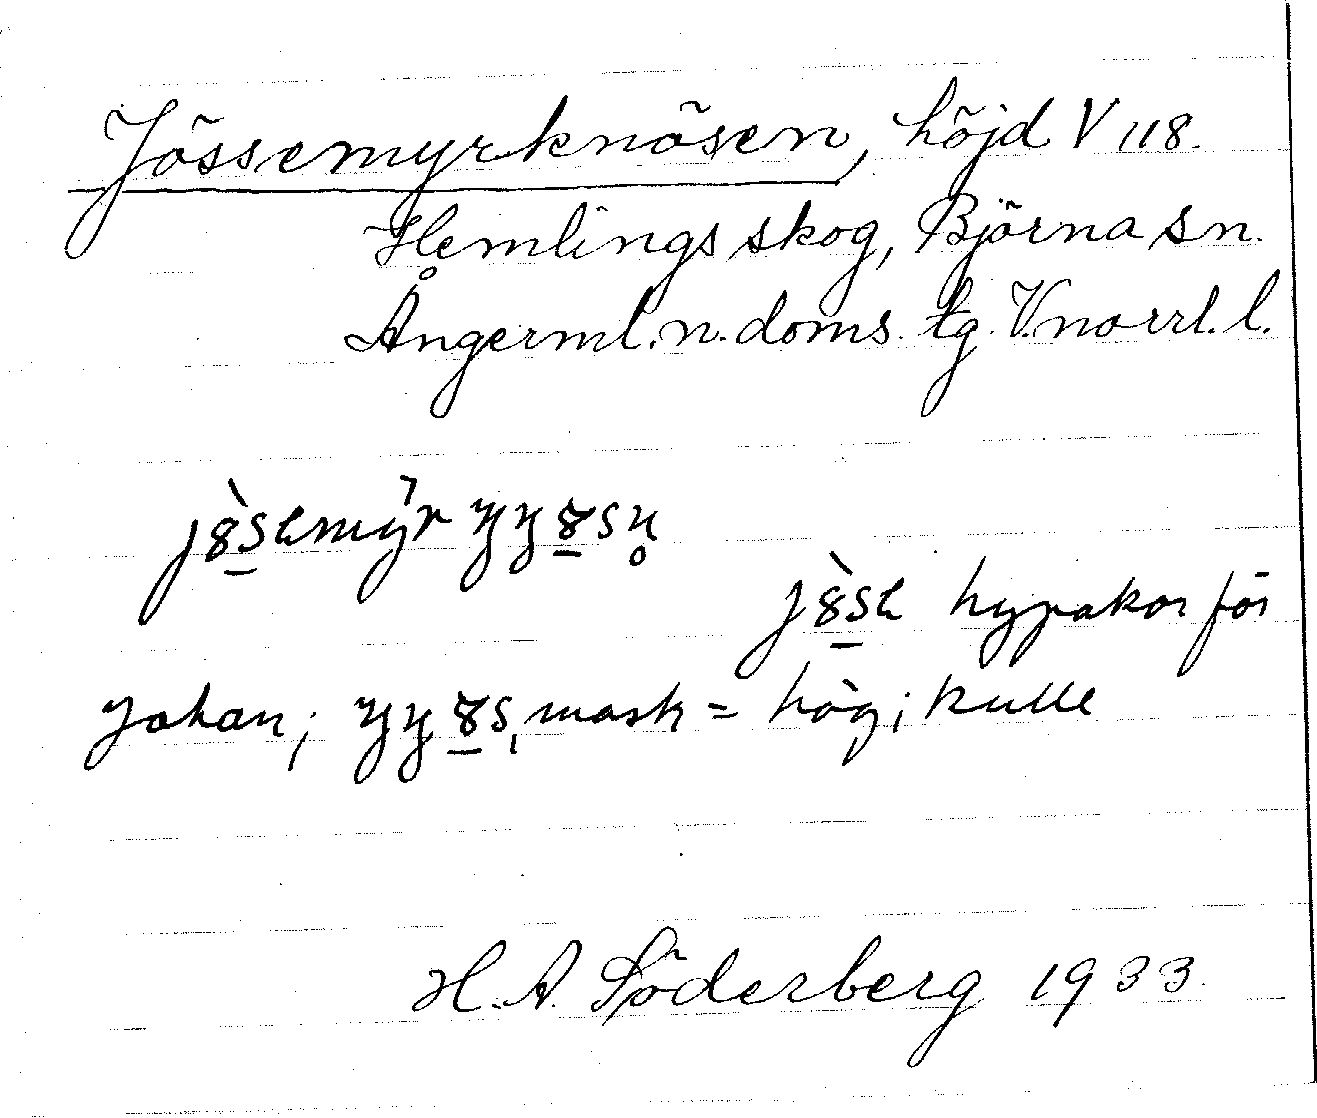 Jössemyrknösen, höjd V 118.
Hemlings skog, Björna sn.
Ångerml. n. doms. tg. V.norrl. l.
j8̀semy̌r ŋŋ8sn̥
j8̀se hypokor för
Johan; ŋŋ8s, mask = hög; kulle
H. A. Söderberg 1933.